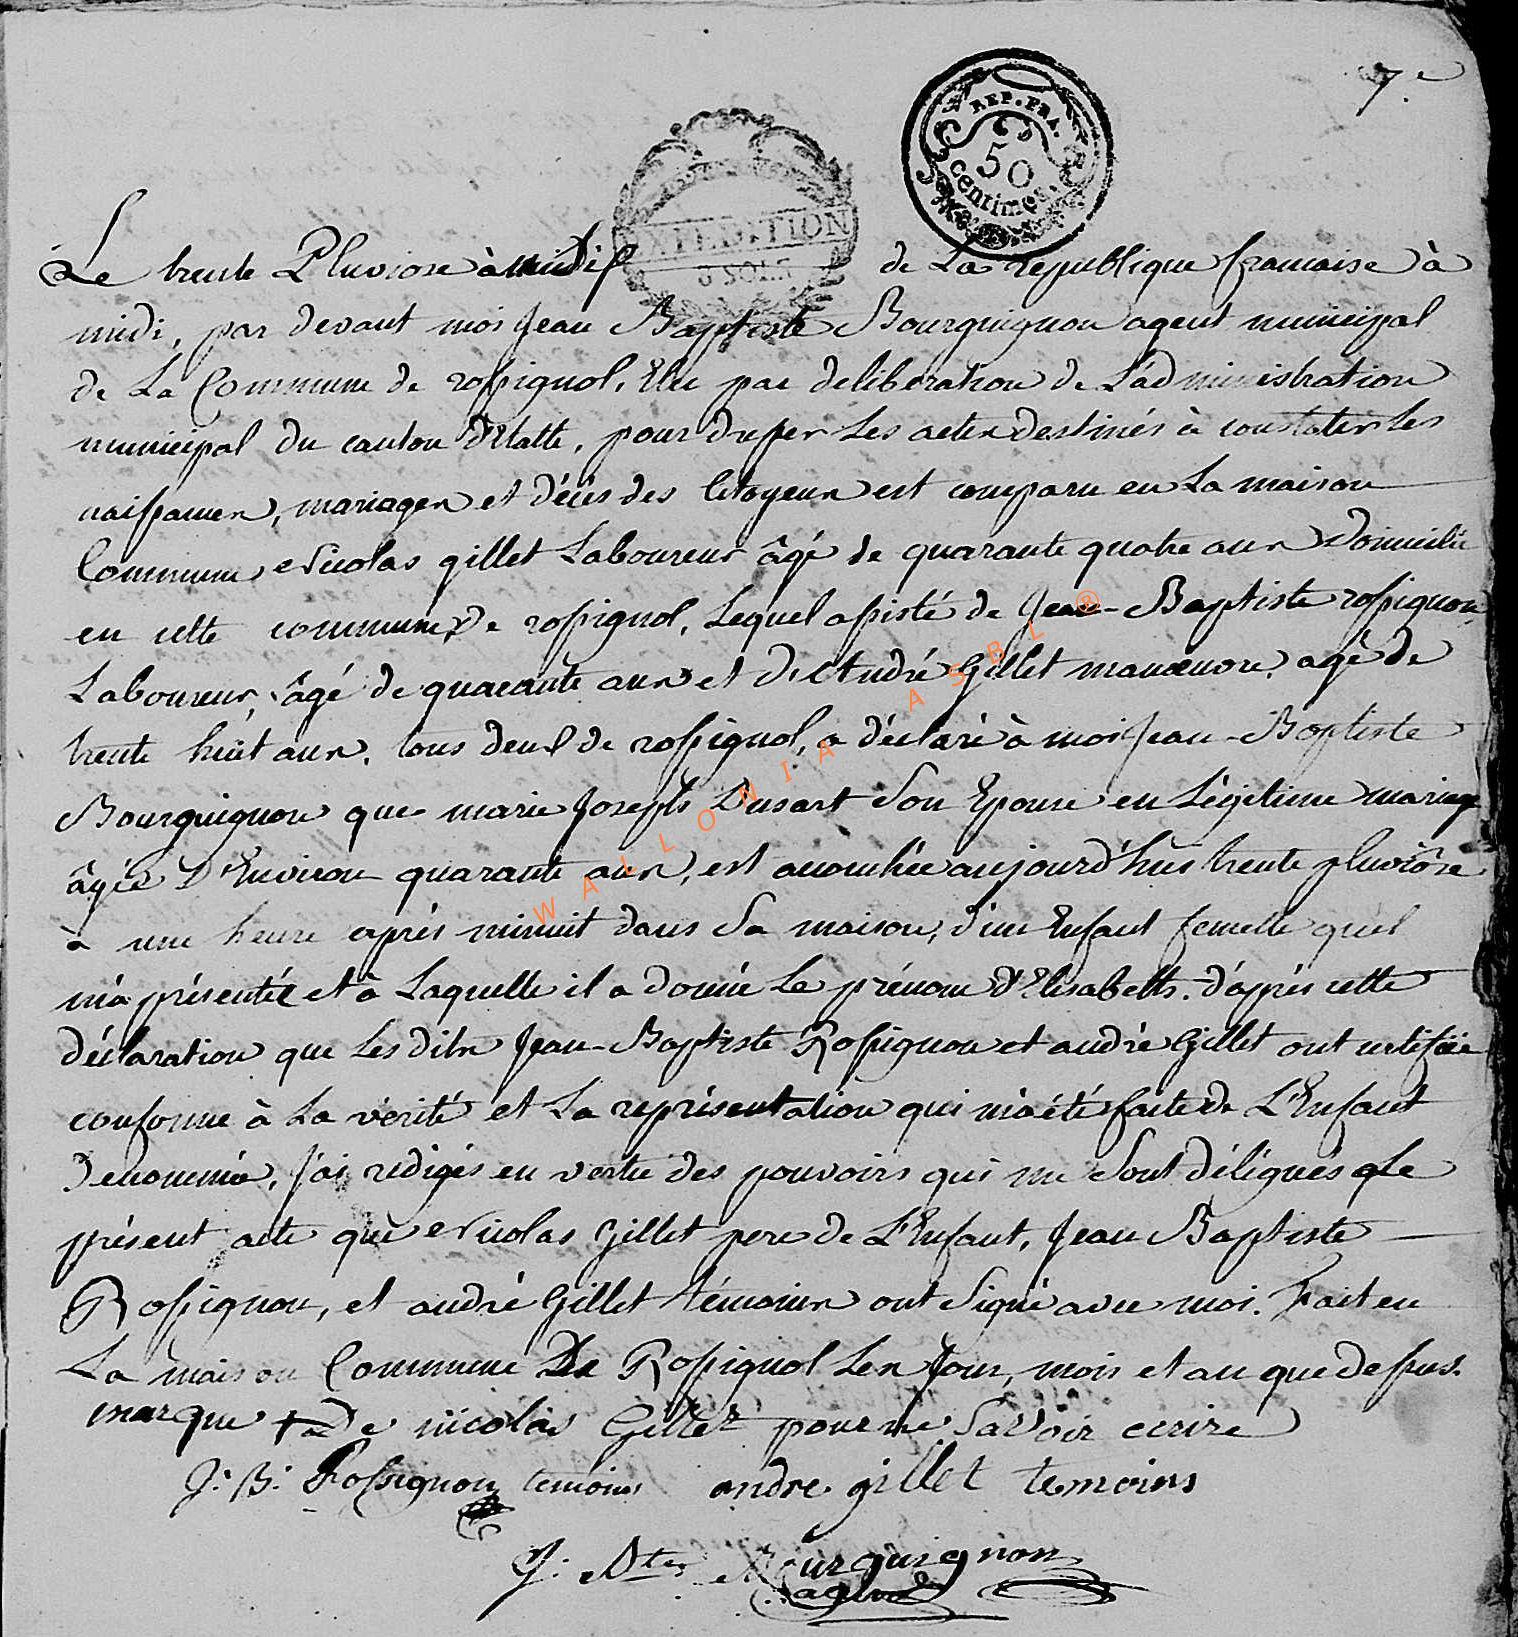 7.e
REP. FRA.
50
centimes.
EXPEDITION
8 SOLS
Le trente Pluviose à midi de La republique francaise à
midi, par devant moi Jean Baptiste Bourguignon agent municipal
de La Commune de rossignol, Elu par deliberation de L'administration
municipal du canton d'Etatte, pour dresser Les actes destinés à constater Les
naissances, mariages et décès des Citoyens est comparu en La maison
Commune Nicolas gillet Laboureur âgé de quarante quatre ans Domicilié
en cette commune de rossignol, Lequel assisté de Jean-Baptiste rossignon
Laboureur, âgé de quarante ans et de André Gillet manœuvre, agé de
trente huit ans, tous deux de rossignol, a déclaré à moi Jean-Baptiste
Bourguignon que marie Joseph Dusart Son Epouse en Légitime mariage
âgée D'Environ quarante ans, est accouchée aujourd'hui trente pluviôse
à une heure après minuit dans Sa maison, d'un Enfant femelle quel
m'a présentée et à Laquelle il a donné Le prénom d'Elisabeth. d'après cette
déclaration que Les dits Jean-Baptiste Rossignon et andré Gillet ont certifiée
conforme à La vérité et La représentation qui m'a été faite de L'Enfant
Denommée, J'ai redigés en vertu des pouvoirs qui me Sont délégués Le
présent acte que Nicolas Gillet pere de L'Enfant, Jean Baptiste
Rossignon, et andré Gillet témoins ont Signé avec moi. Fait en
La maison Commune De Rossignol Les Jour, mois et an que dessus.
marque + de nicolas Gillet pour ne Savoir ecrire
J: B: Rossignon temoins andre gillet temoins
J: Bte Bourguignon
agent
WALLONIA ASBL ®